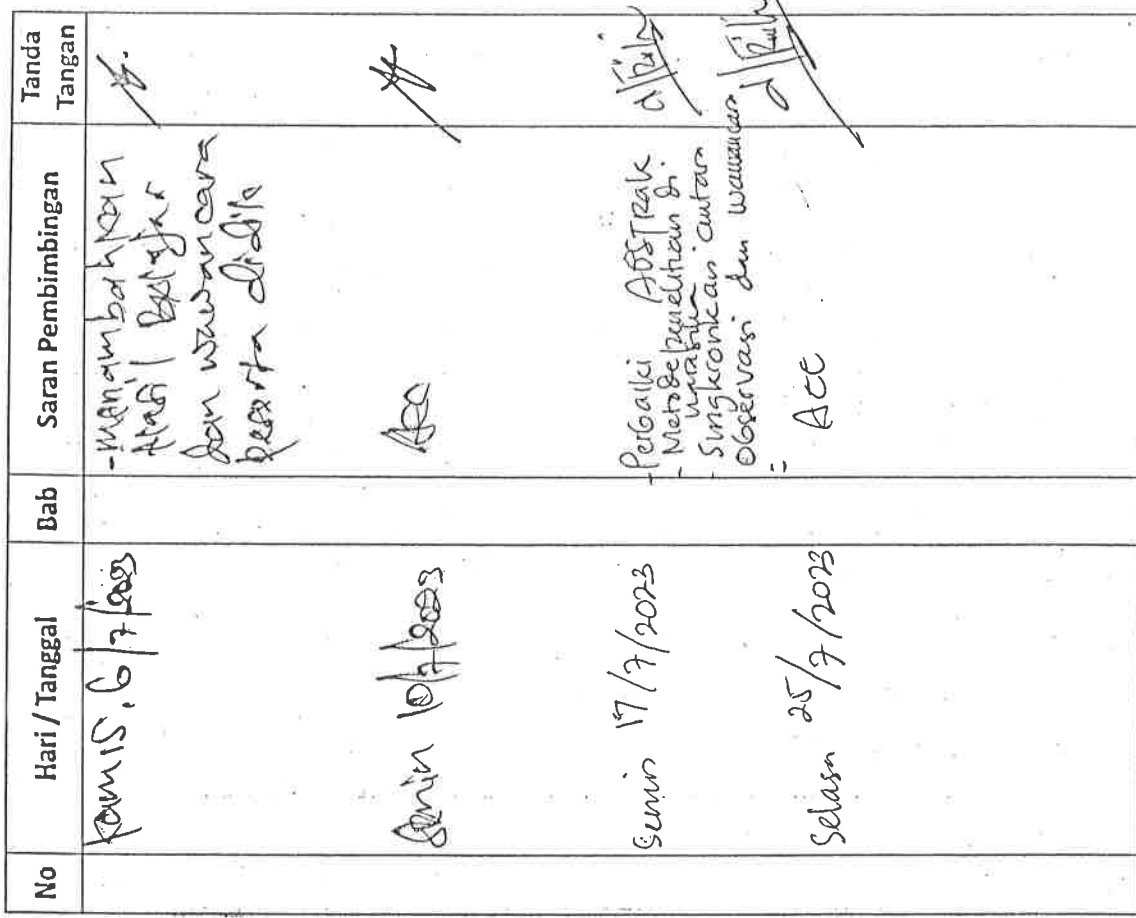 No Hari / Tanggal Bab Saran Pembimbingan Tanda Tangan
Kamis, 6/7/2023
- Menambahkan
Hasil Belajar
dan wawancara
peserta didik
Senin 10/7/2023 Acc
Senin 17/7/2023
- Perbaiki ABSTRAK
- Metode penelitian di
narasikan
- Singkronkan antara
observasi dan wawancara
Selasa 25/7/2023 = Acc